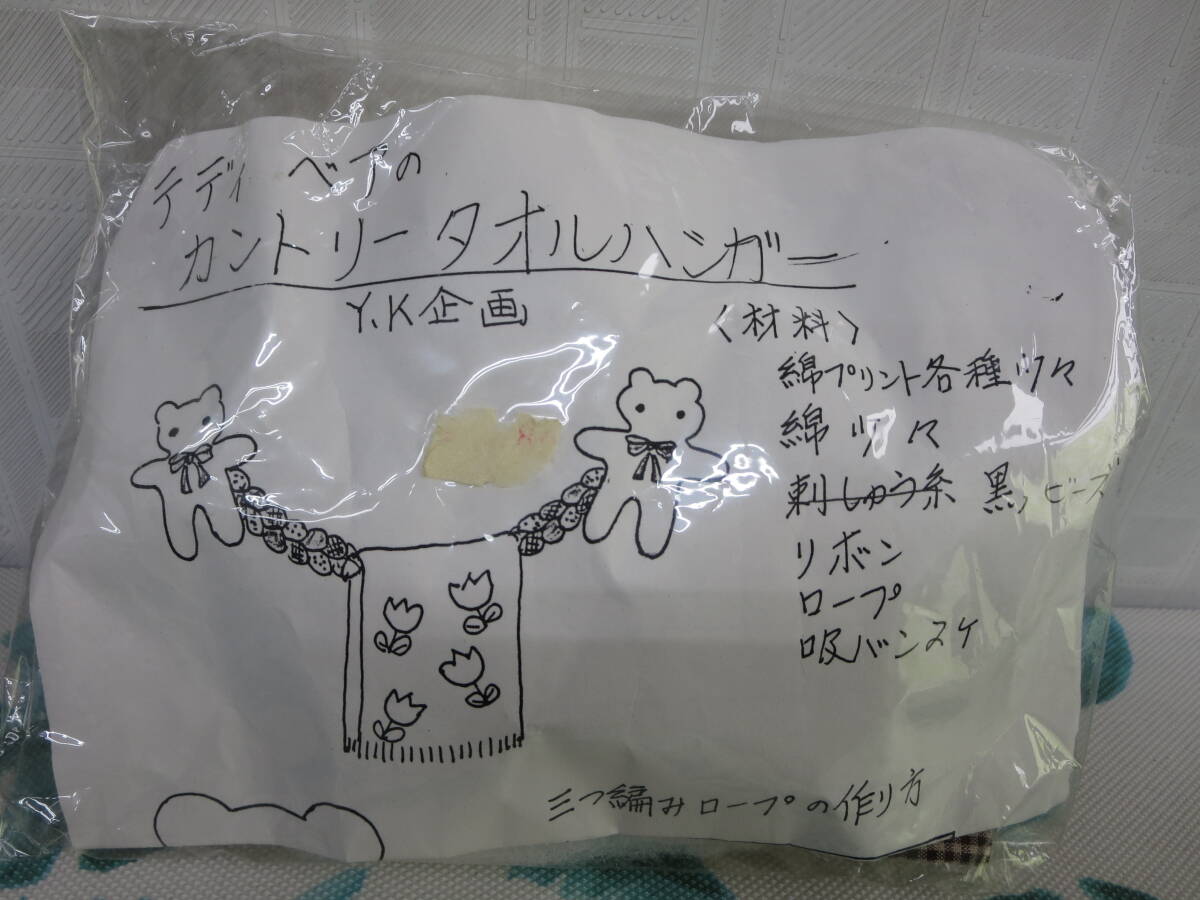 テディ ベアの
カントリータオルハンガー
Y.K企画
〈材料〉
綿プリント各種少々
綿 少々
刺しゅう糸 黒,ビーズ
リボン
ロープ
吸バンスケ
三つ編みロープの作り方